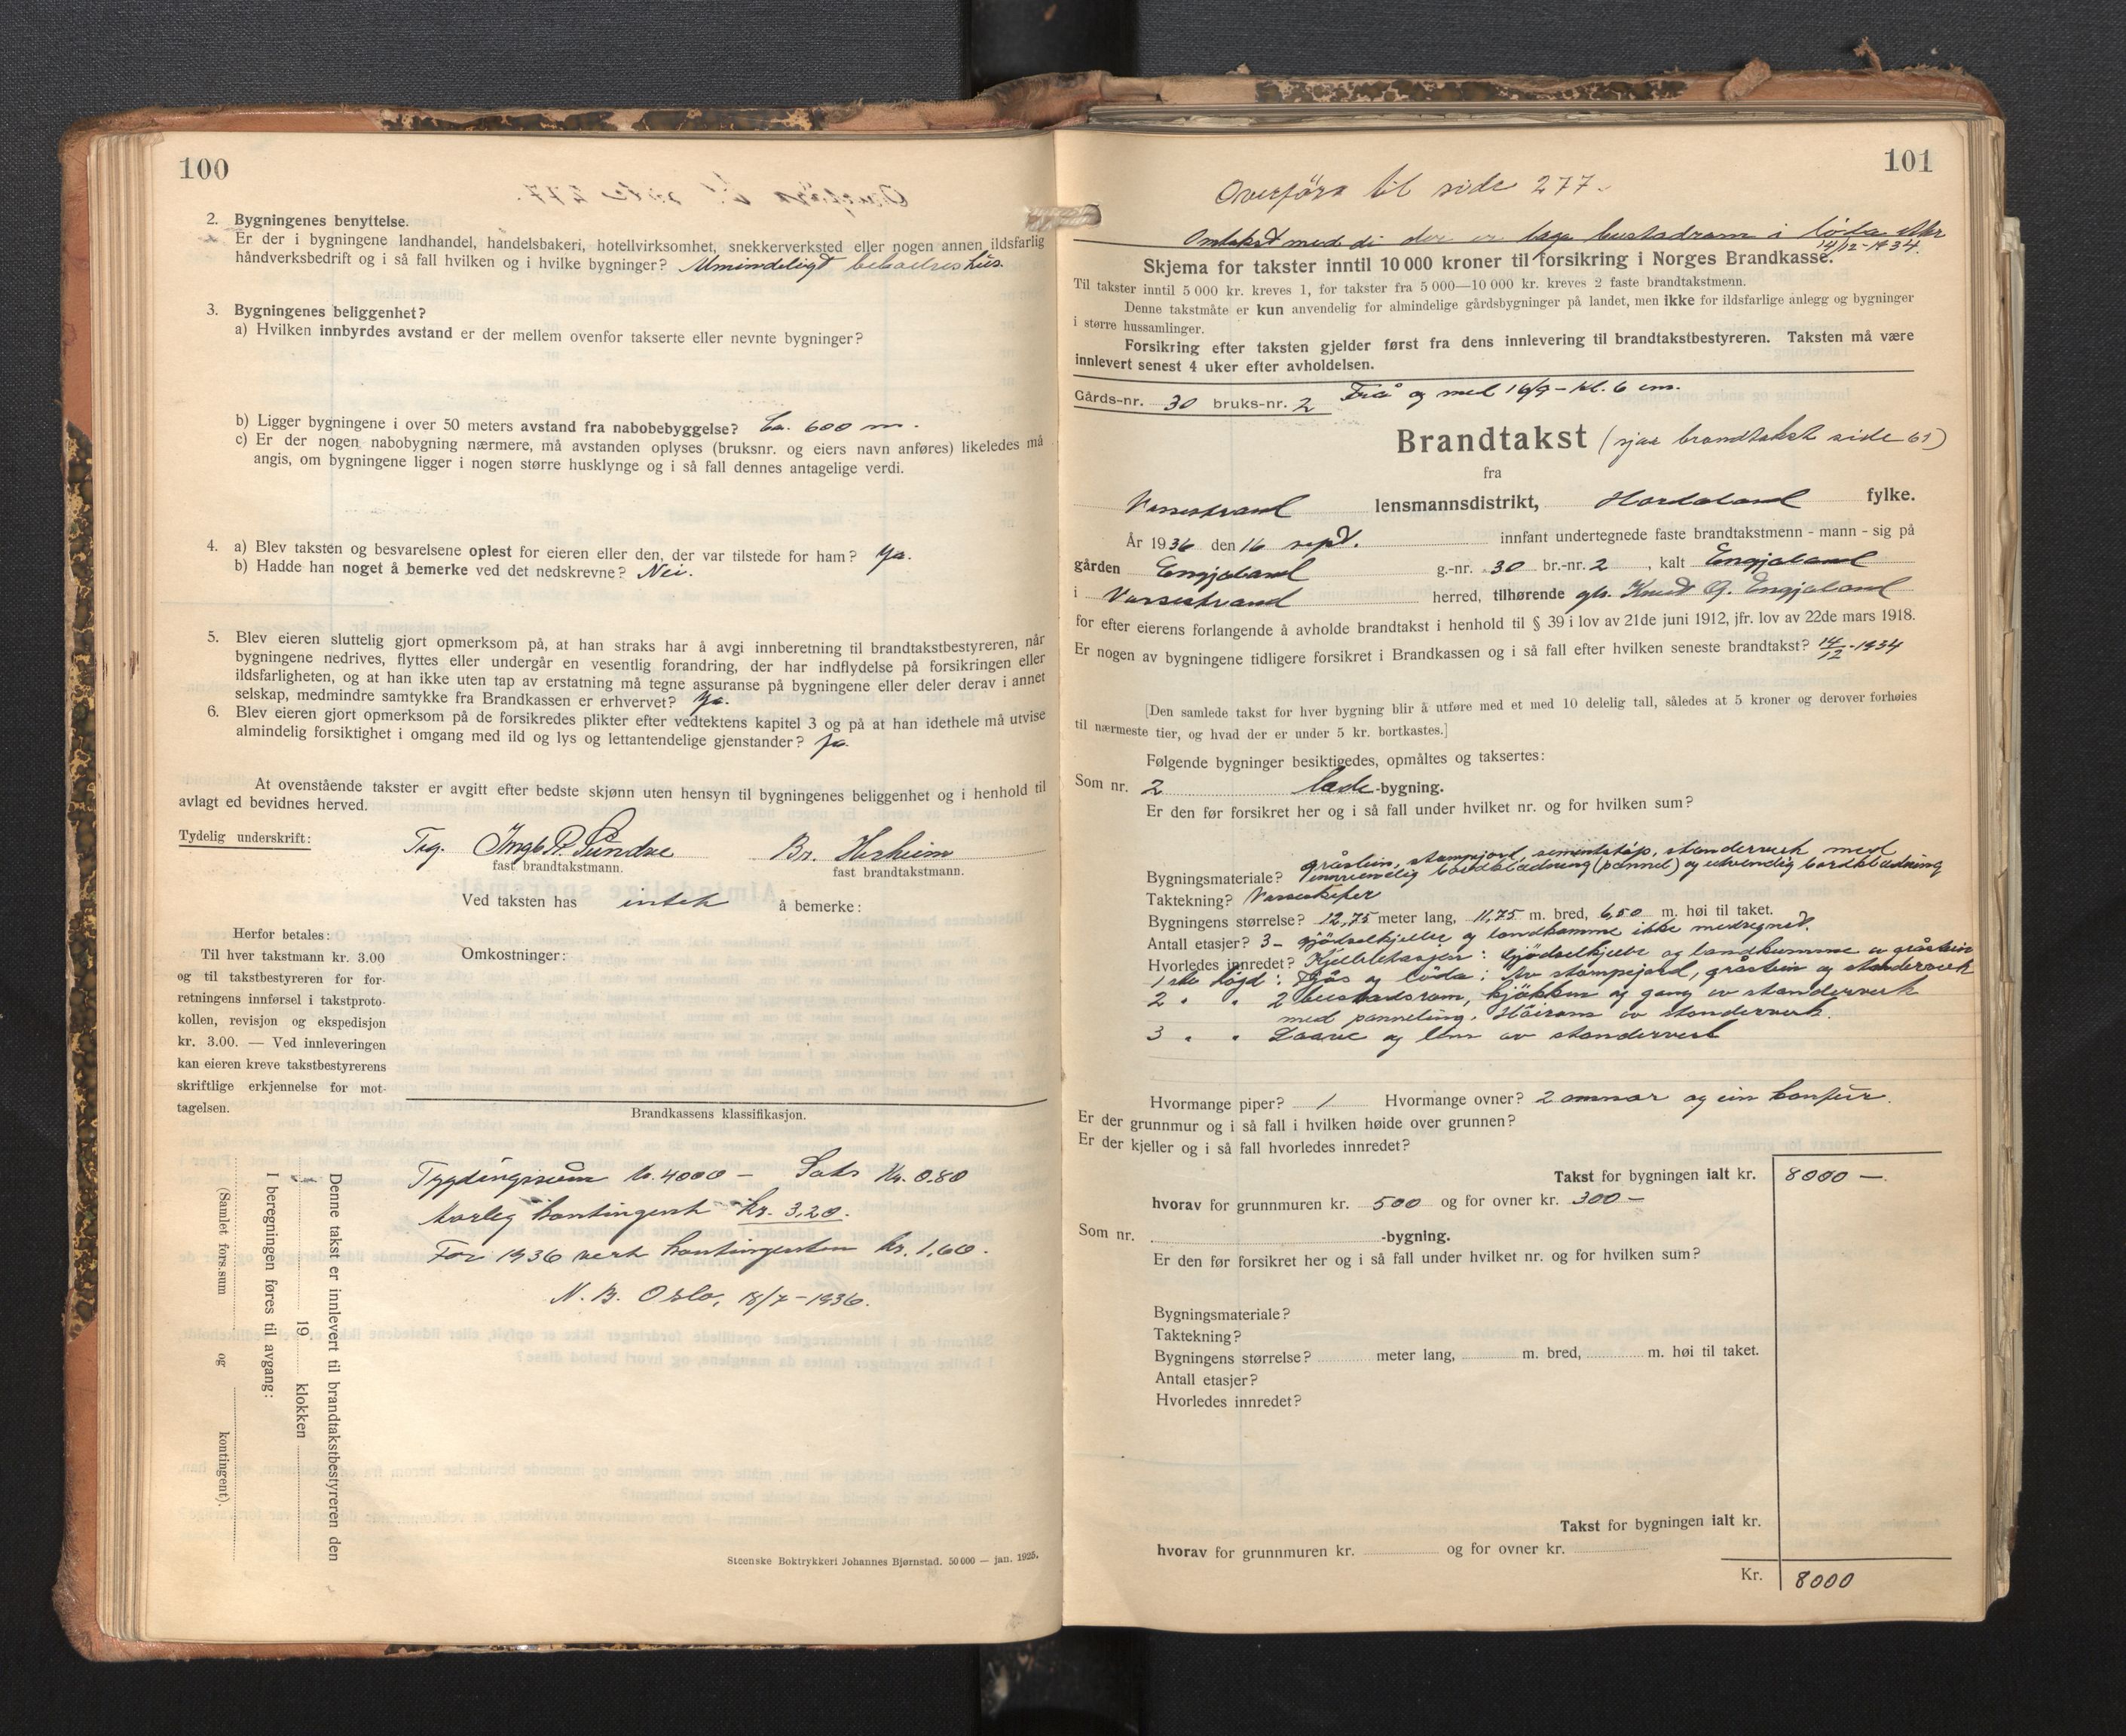 100
2. Bygningenes benyttelse.
Er der i bygningene landhandel, handelsbakeri, hotellvirksomhet, snekkerverksted eller nogen annen ildsfarlig
håndverksbedrift og i så fall hvilken og i hvilke bygninger? Almindeligt hus.
3. Bygningenes beliggenhet?
a) Hvilken innbyrdes avstand er der mellem ovenfor takserte eller nevnte bygninger?
b) Ligger bygningene i over 50 meters avstand fra nabobebyggelse? ca. 600 m.
c) Er der nogen nabobygning nærmere, må avstanden oplyses (bruksnr. og eiers navn anføres) likeledes må
angis, om bygningene ligger i nogen større husklynge og i så fall dennes antagelige verdi.
4. a) Blev taksten og besvarelsene oplest for eieren eller den, der var tilstede for ham? Ja.
b) Hadde han noget å bemerke ved det nedskrevne? Nei.
5. Blev eieren sluttelig gjort opmerksom på, at han straks har å avgi innberetning til brandtakstbestyreren, når
bygningene nedrives, flyttes eller undergår en vesentlig forandring, der har indflydelse på forsikringen eller
ildsfarligheten, og at han ikke uten tap av erstatning må tegne assuranse på bygningene eller deler derav i annet
selskap, medmindre samtykke fra Brandkassen er erhvervet? Ja.
6. Blev eieren gjort opmerksom på de forsikredes plikter efter vedtektens kapitel 3 og på at han idethele må utvise
almindelig forsiktighet i omgang med ild og lys og lettantendelige gjenstander? Ja.
At ovenstående takster er avgitt efter bedste skjønn uten hensyn til bygningenes beliggenhet og i henhold til
avlagt ed bevidnes herved.
Tydelig underskrift: Ingb. P. Sundve Br. Horheim
fast brandtakstmann. fast brandtakstmann.
Ved taksten has intek å bemerke:
Herfor betales:
Til hver takstmann kr. 3.00
og til takstbestyreren for for-
retningens innførsel i takstproto-
kollen, revisjon og ekspedisjon
kr. 3.00. — Ved innleveringen
kan eieren kreve takstbestyrerens
skriftlige erkjennelse for mot-
tagelsen.
Omkostninger:
Brandkassens klassifikasjon.
Tryggingssum kr. 4000 — Sats Kr. 0.80
Aarleg kontingent Kr. 3.20.
For 1936 vert kontingenten kr. 1,60.
N. B. Oslo, 18/7-1936.
Denne takst er innlevert til brandtakstbestyreren den
19 klokken
I beregningen føres til avgang:
(Samlet fors.sum og kontingent).
Steenske Boktrykkeri Johannes Bjørnstad. 50 000 — jan. 1925.
101
Overføra til side 277.
Omtakst med di der er laga bustadrom i løda etter
14/12-1934.
Skjema for takster inntil 10 000 kroner til forsikring i Norges Brandkasse.
Til takster inntil 5 000 kr. kreves 1, for takster fra 5 000—10 000 kr. kreves 2 faste brandtakstmenn.
Denne takstmåte er kun anvendelig for almindelige gårdsbygninger på landet, men ikke for ildsfarlige anlegg og bygninger
i større hussamlinger.
Forsikring efter taksten gjelder først fra dens innlevering til brandtakstbestyreren. Taksten må være
innlevert senest 4 uker efter avholdelsen.
Gårds-nr. 30 bruks-nr. 2 Frå og med 16/9 - kl. 6 em.
Brandtakst (sjaa brandtakst side 61)
fra
Vossestrand lensmannsdistrikt, Hordaland fylke.
År 1936 den 16 sept. innfant undertegnede faste brandtakstmenn - mann - sig på
gården Engjaland g.-nr. 30 br.-nr. 2, kalt Engjaland
i Vossestrand herred, tilhørende gb. Knut G. Engjaland
for efter eierens forlangende å avholde brandtakst i henhold til § 39 i lov av 21de juni 1912, jfr. lov av 22de mars 1918.
Er nogen av bygningene tidligere forsikret i Brandkassen og i så fall efter hvilken seneste brandtakst? 14/12-1934
[Den samlede takst for hver bygning blir å utføre med et med 10 delelig tall, således at 5 kroner og derover forhøies
til nærmeste tier, og hvad der er under 5 kr. bortkastes.]
Følgende bygninger besiktigedes, opmåltes og taksertes:
Som nr. 2 løde-bygning.
Er den før forsikret her og i så fall under hvilket nr. og for hvilken sum?
gråstein, stampejord, sementstøp, standerverk med
Bygningsmateriale? innvendig bordklædning (pannel) og utvendig bordklædning
Taktekning? Vosseskifer
Bygningens størrelse? 12,75 meter lang, 11,75 m. bred, 6,50 m. høi til taket.
Antall etasjer? 3 - gjødselkjeller og landkumme ikke medregnet.
Hvorledes innredet? Kjelleretasjen: Gjødselkjeller og landkumme av gråstein
1ste høgd: Fjøs og løda: Av stampejord, gråstein og standerverk
2 " " 2 bustadsrom, kjøkken og gang av standerverk
med panneling. Høirom av standerverk.
3 " " Laave og lem av standerverk
Hvormange piper? 1 Hvormange ovner? 2 omnar og ein komfur.
Er der grunnmur og i så fall i hvilken høide over grunnen?
Er der kjeller og i så fall hvorledes innredet?
Takst for bygningen ialt kr. 8000 —
hvorav for grunnmuren kr. 500 og for ovner kr. 300 —
Som nr. -bygning.
Er den før forsikret her og i så fall under hvilket nr. og for hvilken sum?
Bygningsmateriale?
Taktekning?
Bygningens størrelse? meter lang, m. bred, m. høi til taket.
Antall etasjer?
Hvorledes innredet?
Takst for bygningen ialt kr.
hvorav for grunnmuren kr. og for ovner kr.
Kr. 8000